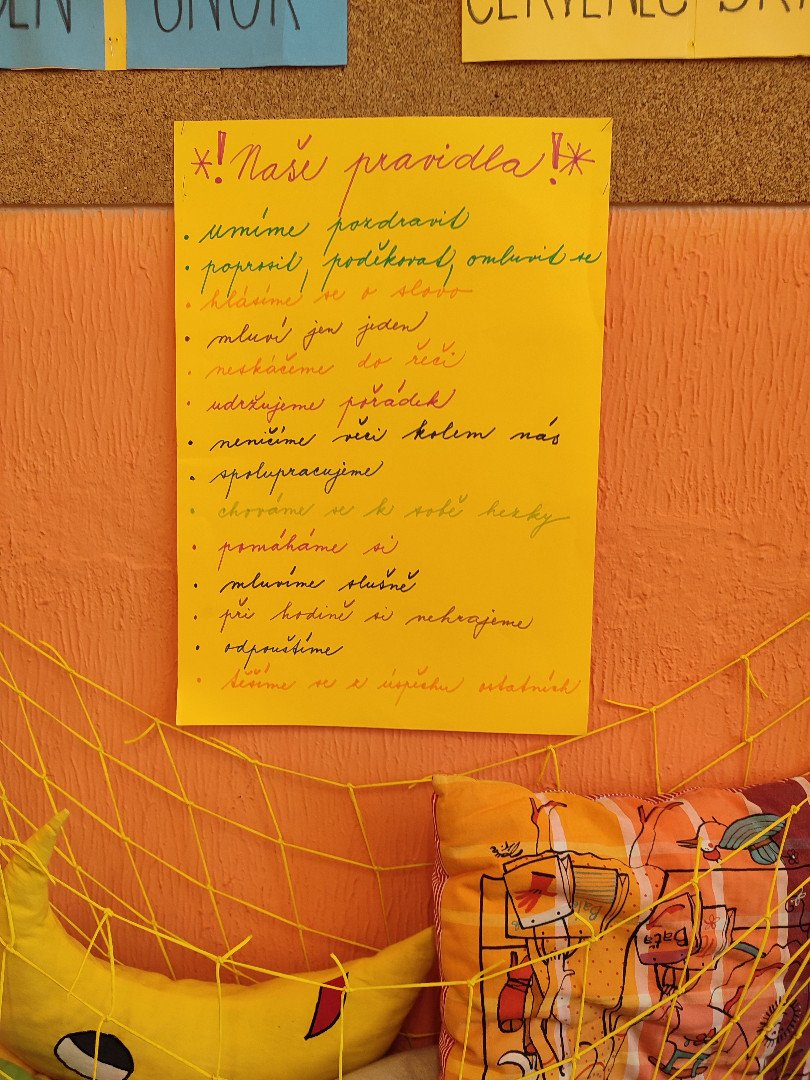 ÚNOR
ČERVENEC
*! Naše pravidla !*
• umíme pozdravit
• poprosit, poděkovat, omluvit se
• hlásíme se o slovo
• mluví jen jeden
• neskáčeme do řeči
• udržujeme pořádek
• neničíme věci kolem nás
• spolupracujeme
• chováme se k sobě hezky
• pomáháme si
• mluvíme slušně
• při hodině si nehrajeme
• odpouštíme
• těšíme se z úspěchu ostatních
Baťa
Baťa